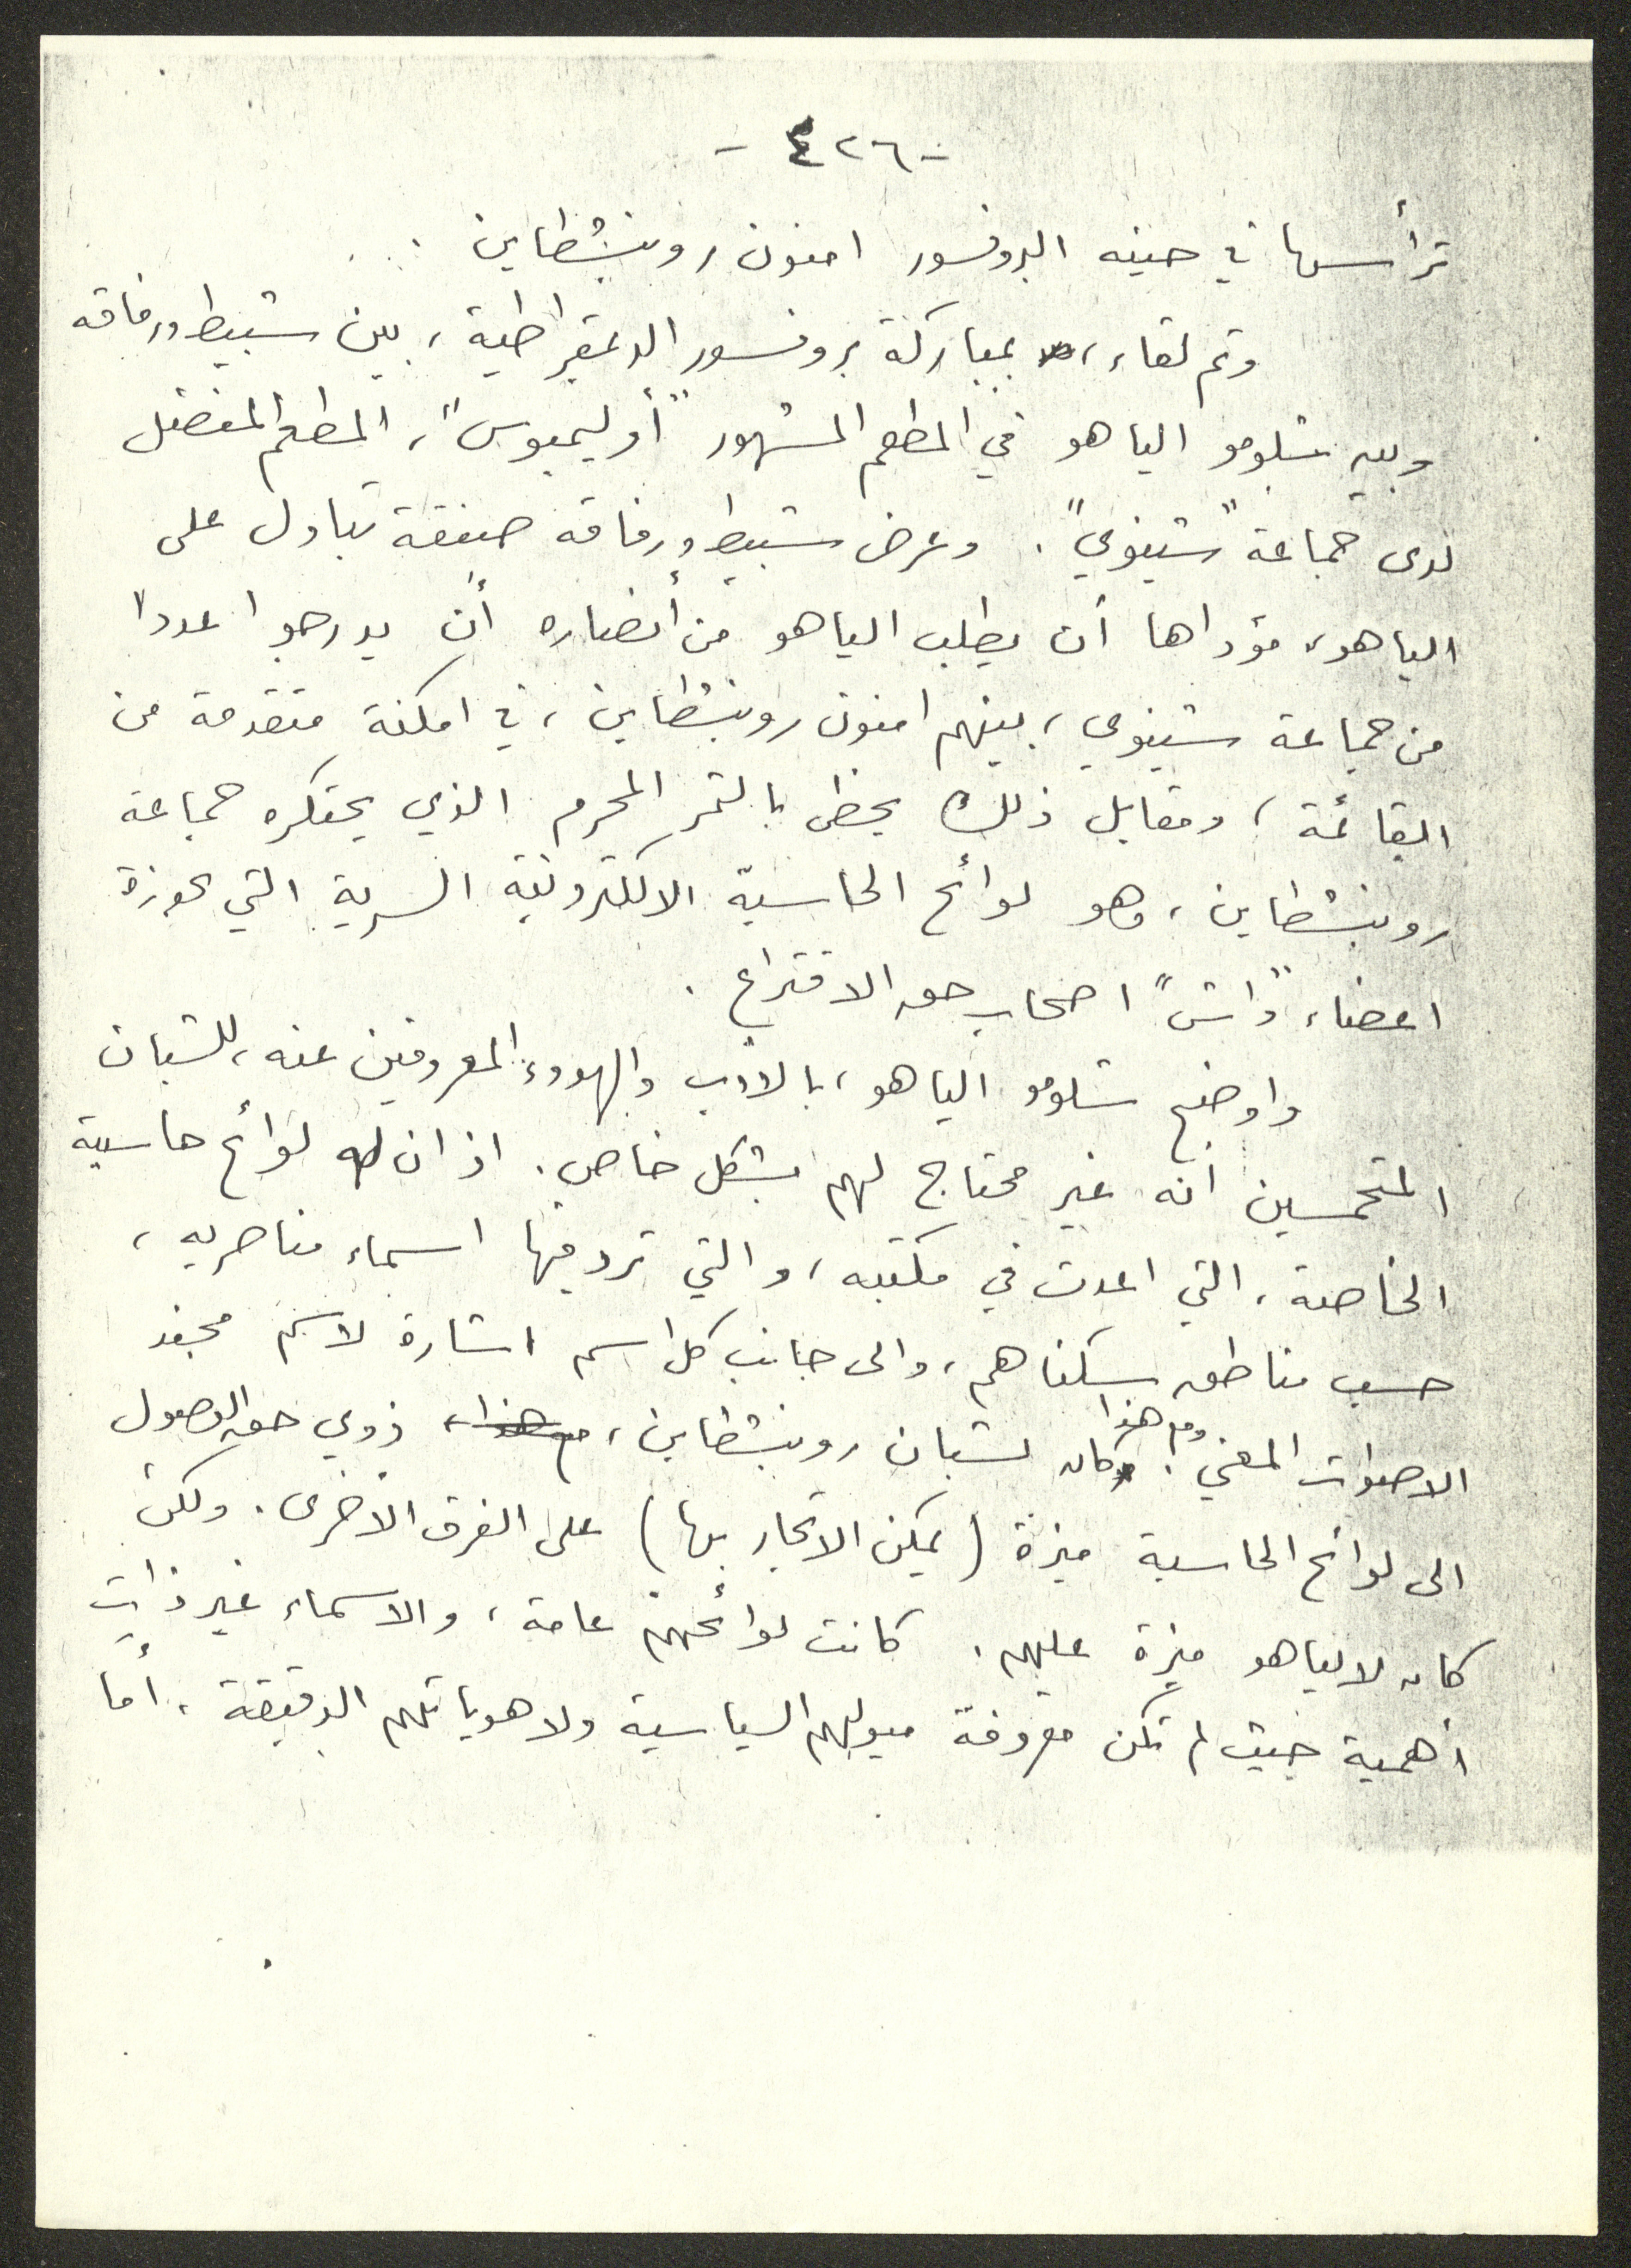 - ٤٢٦ -
ترأسها في حينه البروفسور امنون روبنشطاين .
وتم لقاء ، بمباركة بروفسور الديمقراطية ، بين شبيط ورفاقه
وبين شلومو الياهو في المطعم المشهور "أوليمبوس" ، المطعم المفضل
لدى جماعة "شينوي" . وعرض شبيط ورفاقه صفقة تبادل على
الياهو ، مؤداها أن يطلب الياهو من أنصاره أن يدرجوا عددا
من جماعة شينوي ، بينهم امنون روبنشطاين ، في امكنة متقدمة من
القائمة ، ومقابل ذلك يحظى بالثمر المحرم الذي يحتكره جماعة
روبنشطاين ، وهو لوائح الحاسبة الالكترونية السرية التي بحوزة
اعضاء "داش" اصحاب حق الاقتراع .
واوضح شلومو الياهو ، بالادب والهدوء المعروفين عنه ، للشبان
المتحمسين انه غير محتاج لهم بشكل خاص . اذ ان له لوائح حاسبة
الخاصة ، التي اعدت في مكتبه ، والتي ترد فيها اسماء مناصريه ،
حسب مناطق سكناهم ، والى جانب كل اسم اشارة لاسم مجند
الاصوات المعني . ومع هذا كان لشبان روبنشطاين ، مع هذا ، ذوي حق الوصول
الى لوائح الحاسبة ميزة (يمكن الاتجار بها) على الفرق الاخرى . ولكن
كان لالياهو ميزة عليهم . كانت لوائحهم عامة ، والاسماء غير ذات
أهمية حيث لم تكن معروفة ميولهم السياسية ولا هوياتهم الدقيقة . أما